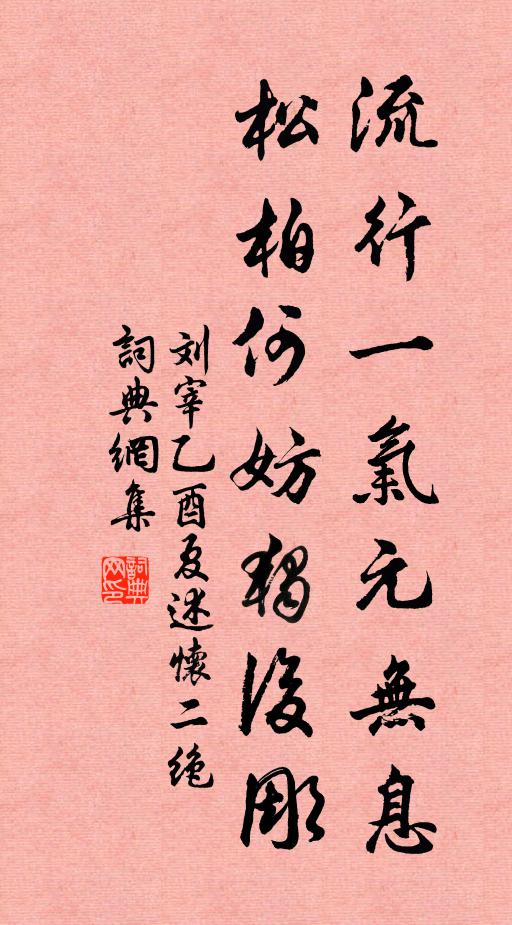 流行一氣元無息
松柏何妨獨後彫
刘宰乙酉夏述懷二絶
詞典網集
詞典网印